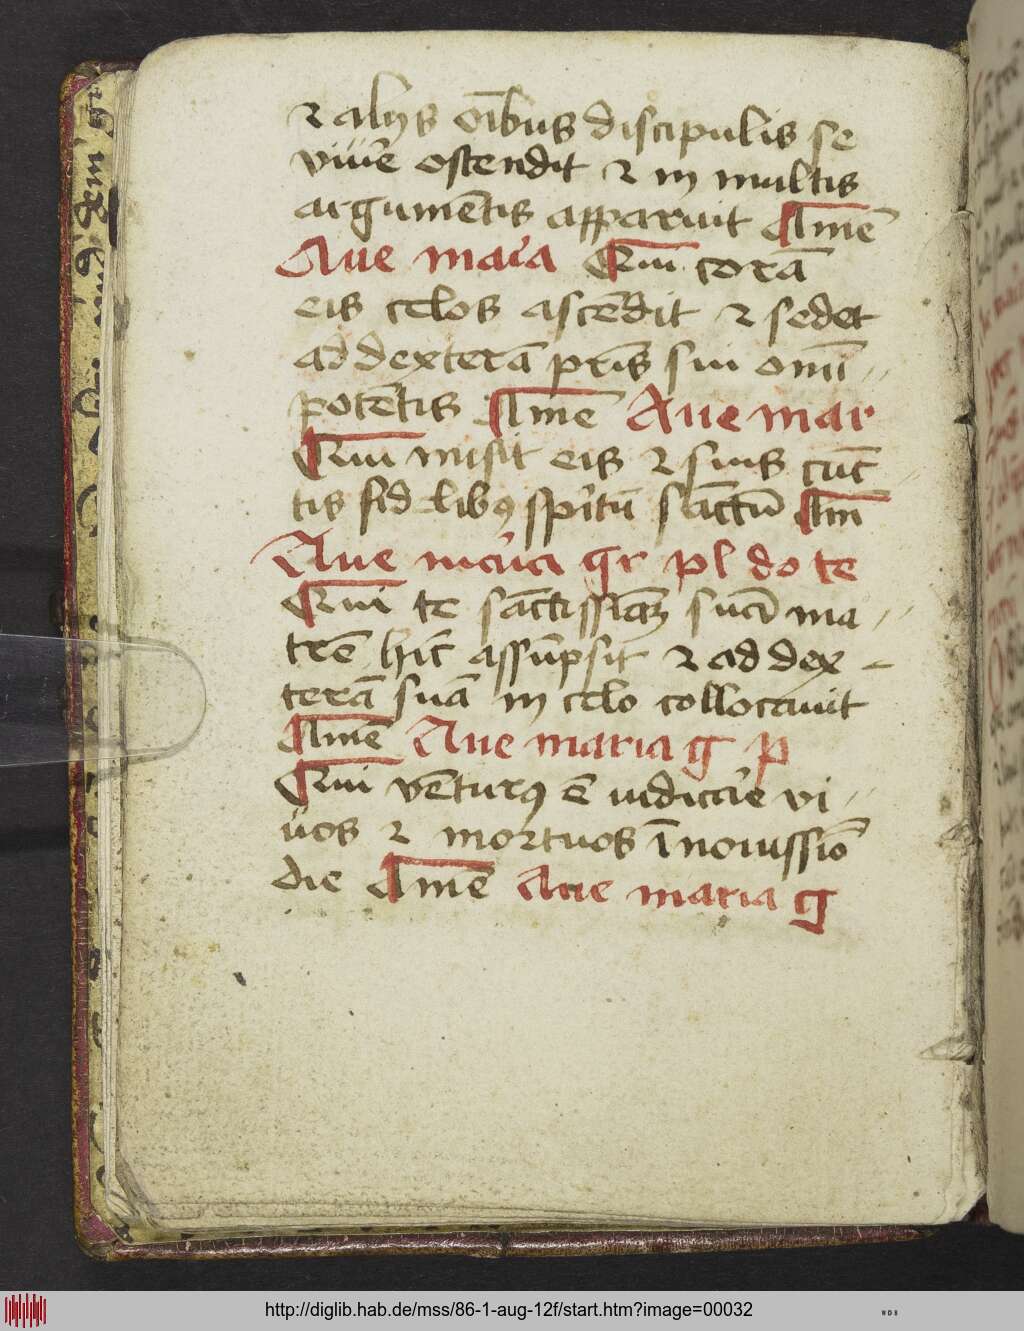 ⁊ alijs oı̄bus discipulis se
viuē ostendit ⁊ in multis
argumētis apparuit Amē
Aue maria Qui corā
eis celos ascēdit ⁊ sedet
ad dexterā pr̄is sui om̄i
potētis Amē Aue mar
Qui misit eis ⁊ suis cūc
tis fidelibꝰ spi̅tū sāctū Am̄
Aue maria gr pl do te
Qui te sāctissiā suā ma
trē hīc assūpsit ⁊ ad dex
terā suā in celo collocauit
Amē Aue maria g p
Qui vēturꝰ ē iudicare vi
uos ⁊ mortuos ī nouissīo
die Amē Aue maria g
http://diglib.hab.de/mss/86-1-aug-12f/start.htm?image=00032